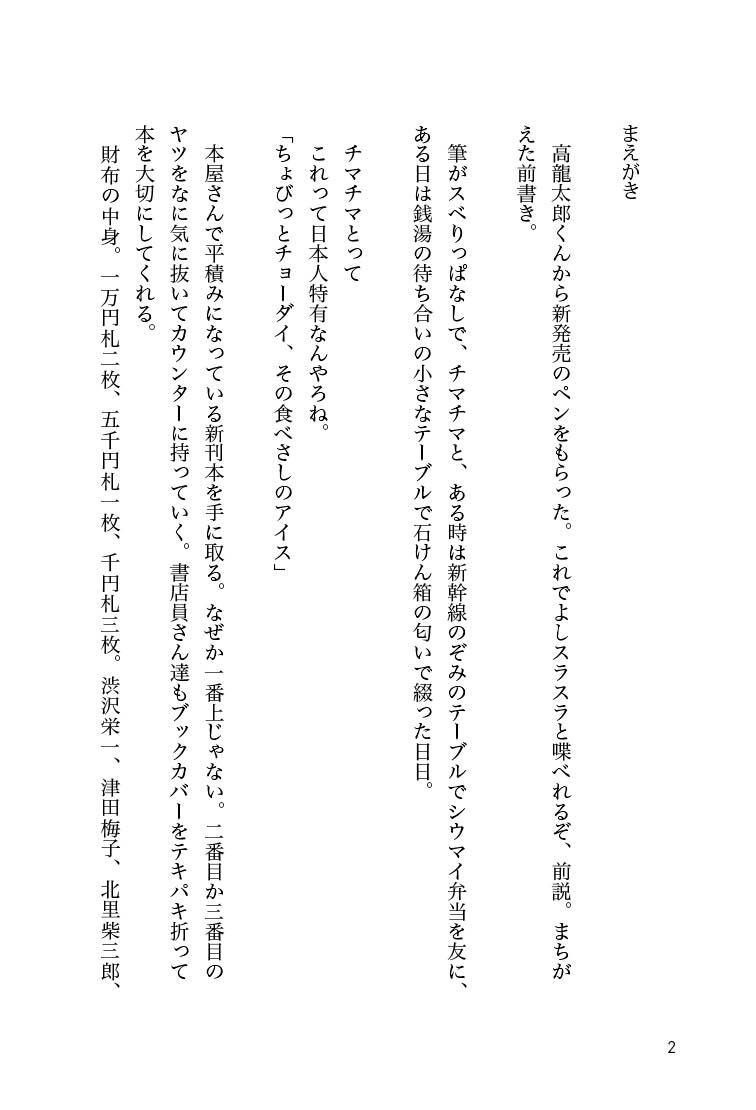 まえがき
高龍太郎くんから新発売のペンをもらった。これでよしスラスラと喋べれるぞ、前説。まちが
えた前書き。
筆がスベりっぱなしで、チマチマと、ある時は新幹線のぞみのテーブルでシウマイ弁当を友に、
ある日は銭湯の待ち合いの小さなテーブルで石けん箱の匂いで綴った日日。
チマチマとって
これって日本人特有なんやろね。
「ちょびっとチョーダイ、その食べさしのアイス」
本屋さんで平積みになっている新刊本を手に取る。なぜか一番上じゃない。二番目か三番目の
ヤツをなに気に抜いてカウンターに持っていく。書店員さん達もブックカバーをテキパキ折って
本を大切にしてくれる。
財布の中身。一万円札二枚、五千円札一枚、千円札三枚。渋沢栄一、津田梅子、北里柴三郎、
2